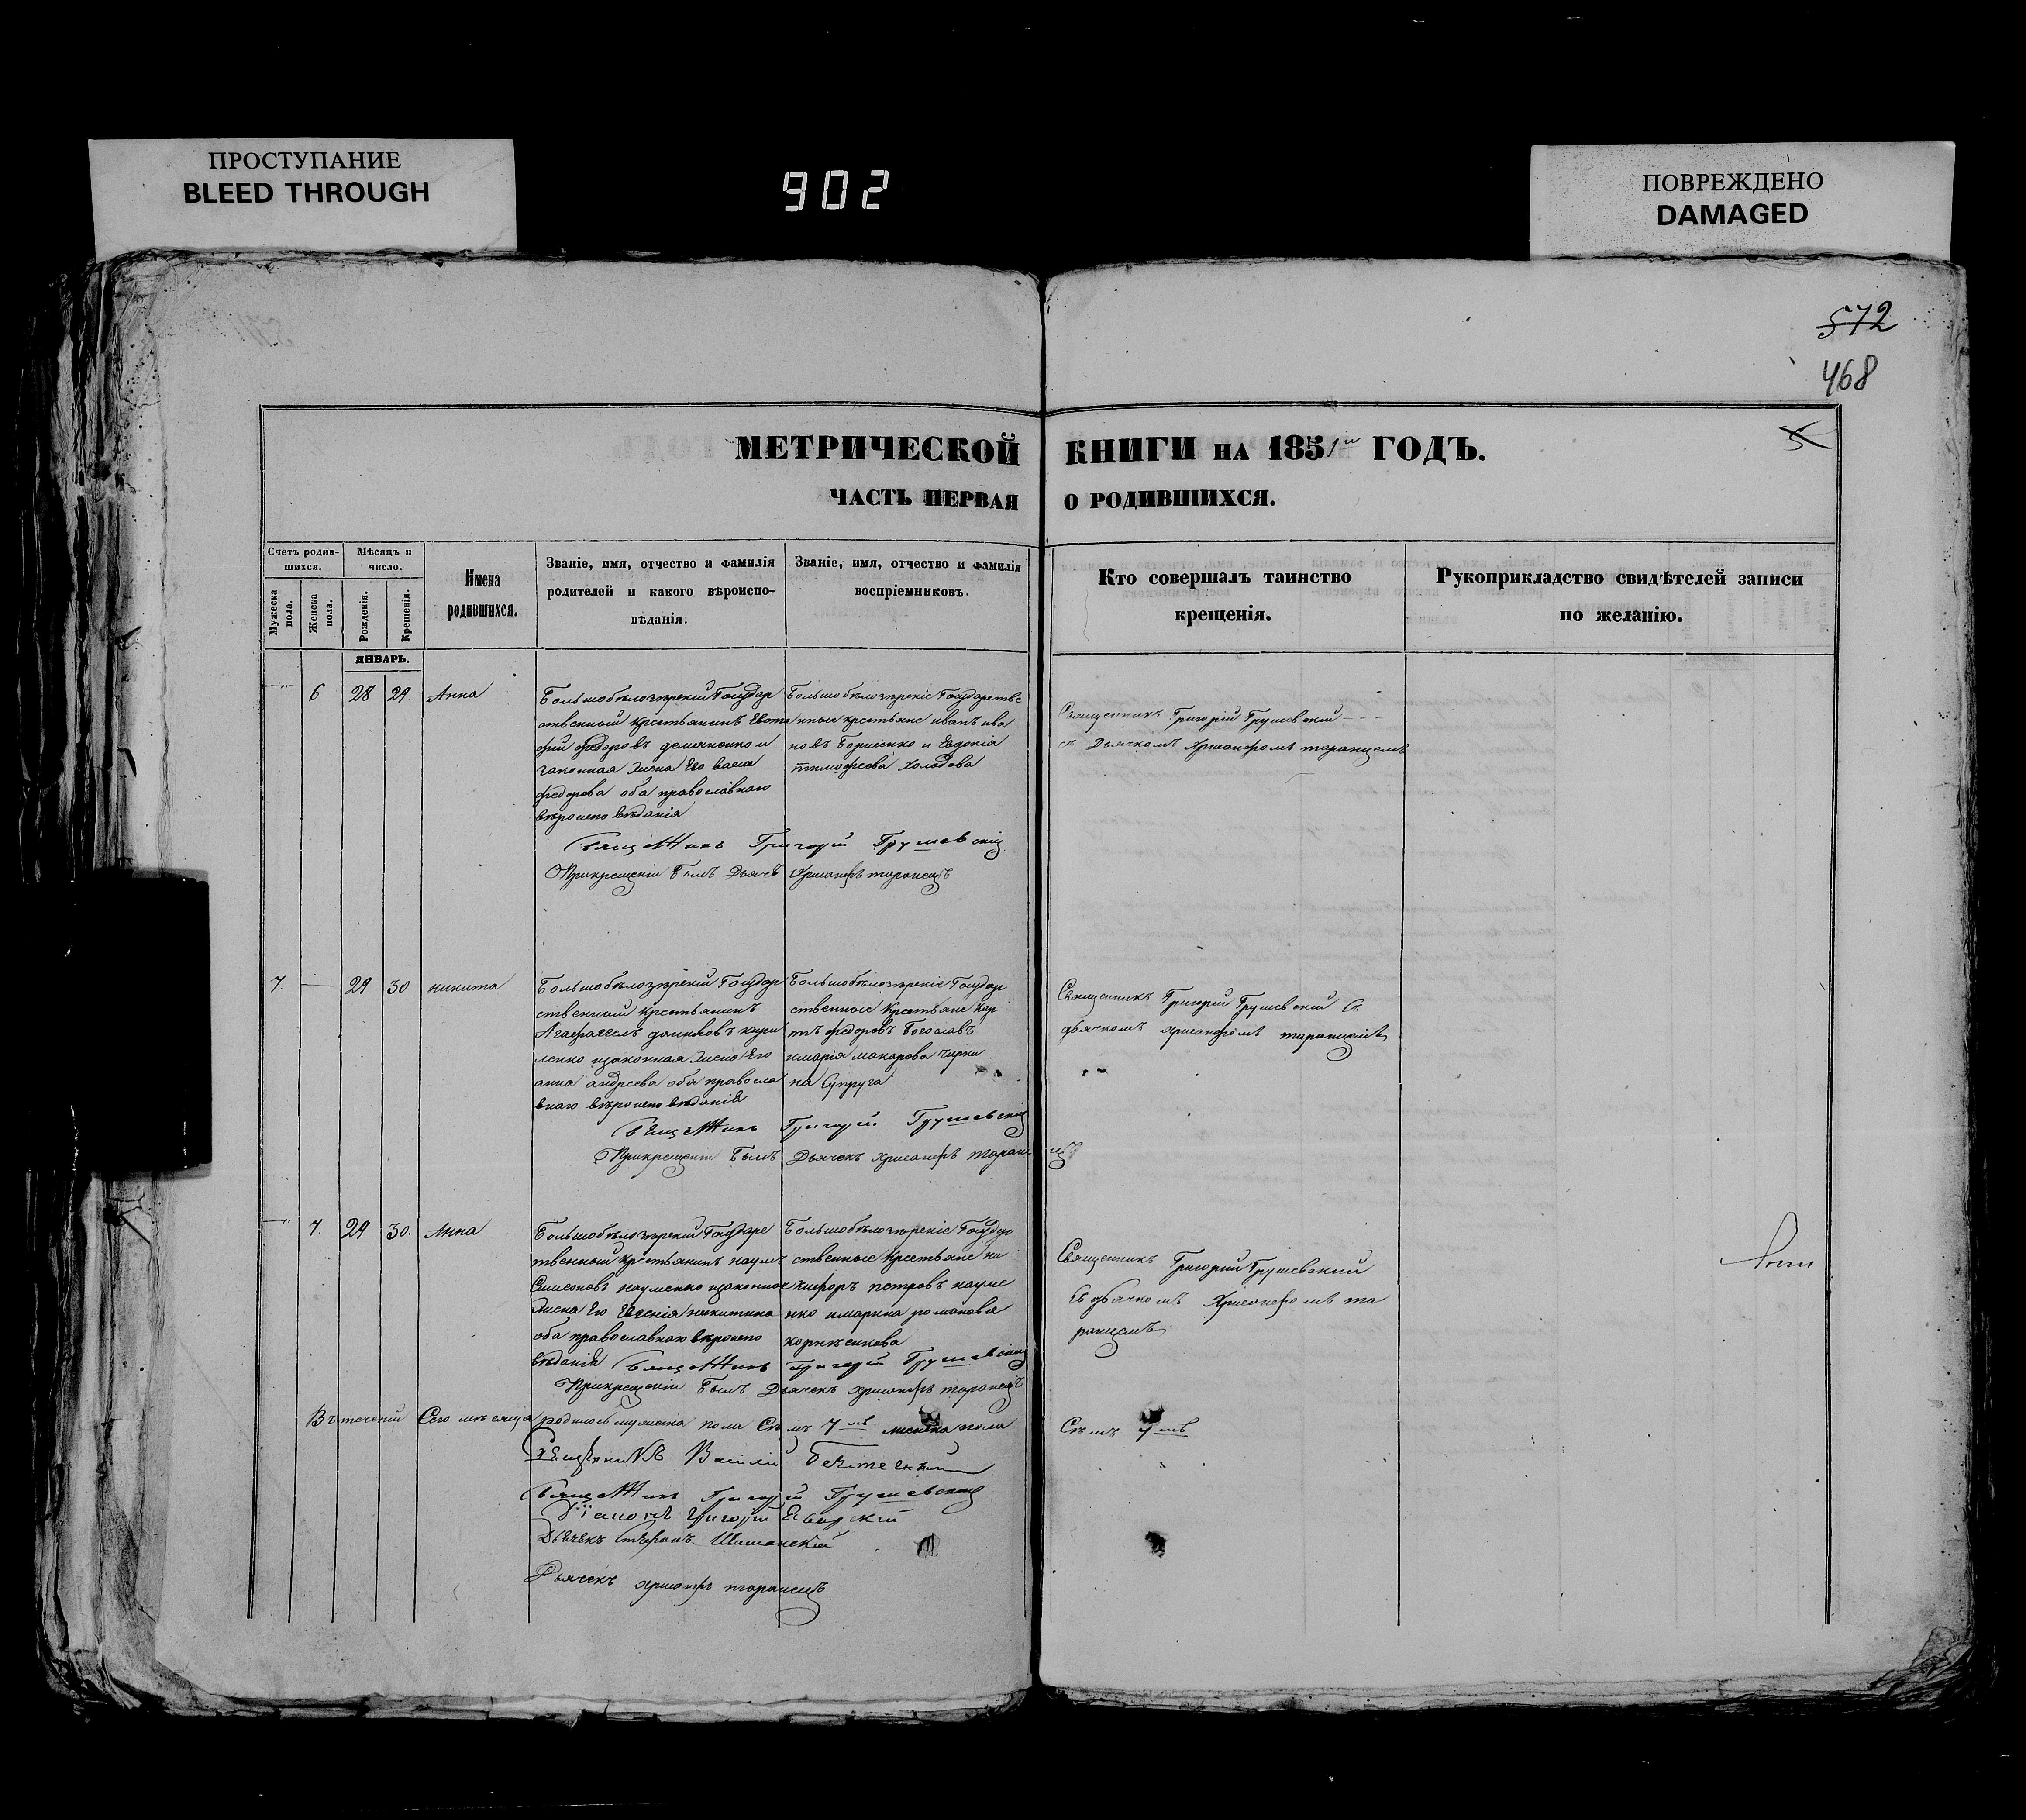 ПРОСТУПАНИЕ
BLEED THROUGH
902
ПОВРЕЖДЕНО
DAMAGED
572
468
5
МЕТРИЧЕСКОЙ КНИГИ НА 1851 ГОДЪ.
ЧАСТЬ ПЕРВАЯ О РОДИВШИХСЯ.
Счетъ родив-
шихся.
Мѣсяцъ и
число.
Мужеска пола.
Женска пола.
Рожденія.
Крещенія.
Имена
родившихся.
Званіе, имя, отчество и фамилія
родителей и какого вѣроиспо-
вѣданія.
Званіе, имя, отчество и фамилія
воспріемниковъ.
Кто совершалъ таинство
крещенія.
Рукоприкладство свидѣтелей записи
по желанію.
ЯНВАРЬ.
6 28 29. Анна
Большобѣлозѣрскій Государ
ственный крестьянинъ
федоровъ
законная жена Его
федорова оба православнаго
вѣроисповѣданія
Большобѣлозѣрскіе Государстве
нные крестьяне иванъ ива
новъ Борисенко и Евдокія
тимофеева Холодова
Священникъ Григорій Грушевскій
съ Дьячкомъ Хрисанфомъ таранцемъ
Священникъ Григорій Грушевскій
При крещеніи Былъ Дьячекъ Хрисанфъ таранецъ
7. 29 30 никита
Большобѣлозѣрскій Государ
ственный крестьянинъ
кири
ленко изаконная жена Его
анна андреева оба правосла
внаго вѣроисповѣданія
Большобѣлозѣрскіе Государ
ственные Крестьяне
федоровъ
имарія макарова
на Супруга
Священникъ Григорій Грушевскій С
дьячкомъ хрисанфомъ таранцемъ
Священникъ Григорій Грушевскій
При крещеніи Былъ Дьячекъ хрисанфъ таранецъ
7. 29 30. Анна
Большобѣлозѣрскій Государс
твенный крестьянинъ наумъ
Симеоновъ науменко изаконная
жена Его Евгенія никитина
оба православнаго вѣроиспо
вѣданія
Большобѣлозѣрскіе Государ
ственные Крестьяне ни
кифоръ петровъ науме
нко имарина романова
Священникъ Григорій Грушевский
Съ дьячкомъ Хрисанфомъ та
ранцемъ
Священникъ Григорій Грушевскій
При крещеніи Былъ Дьячекъ хрисанфъ таранецъ
Въ теченіи Сего мѣсяца родилось мужеска пола Семь 7мь женска пола Семь 7мь
Священникъ Василій
Священникъ Григорій Грушевскій
Діаконъ Григорій Яворскій
Дьячекъ Стефанъ Шиманскій
Дьячекъ хрисанфъ таранецъ